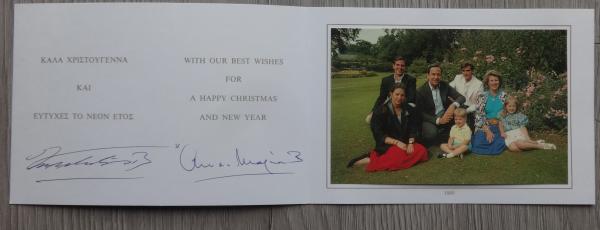 ΚΑΛΑ ΧΡΙΣΤΟΥΓΕΝΝΑ
ΚΑΙ
ΕΥΤΥΧΕΣ ΤΟ ΝΕΟΝ ΕΤΟΣ
WITH OUR BEST WISHES
FOR
A HAPPY CHRISTMAS
AND NEW YEAR